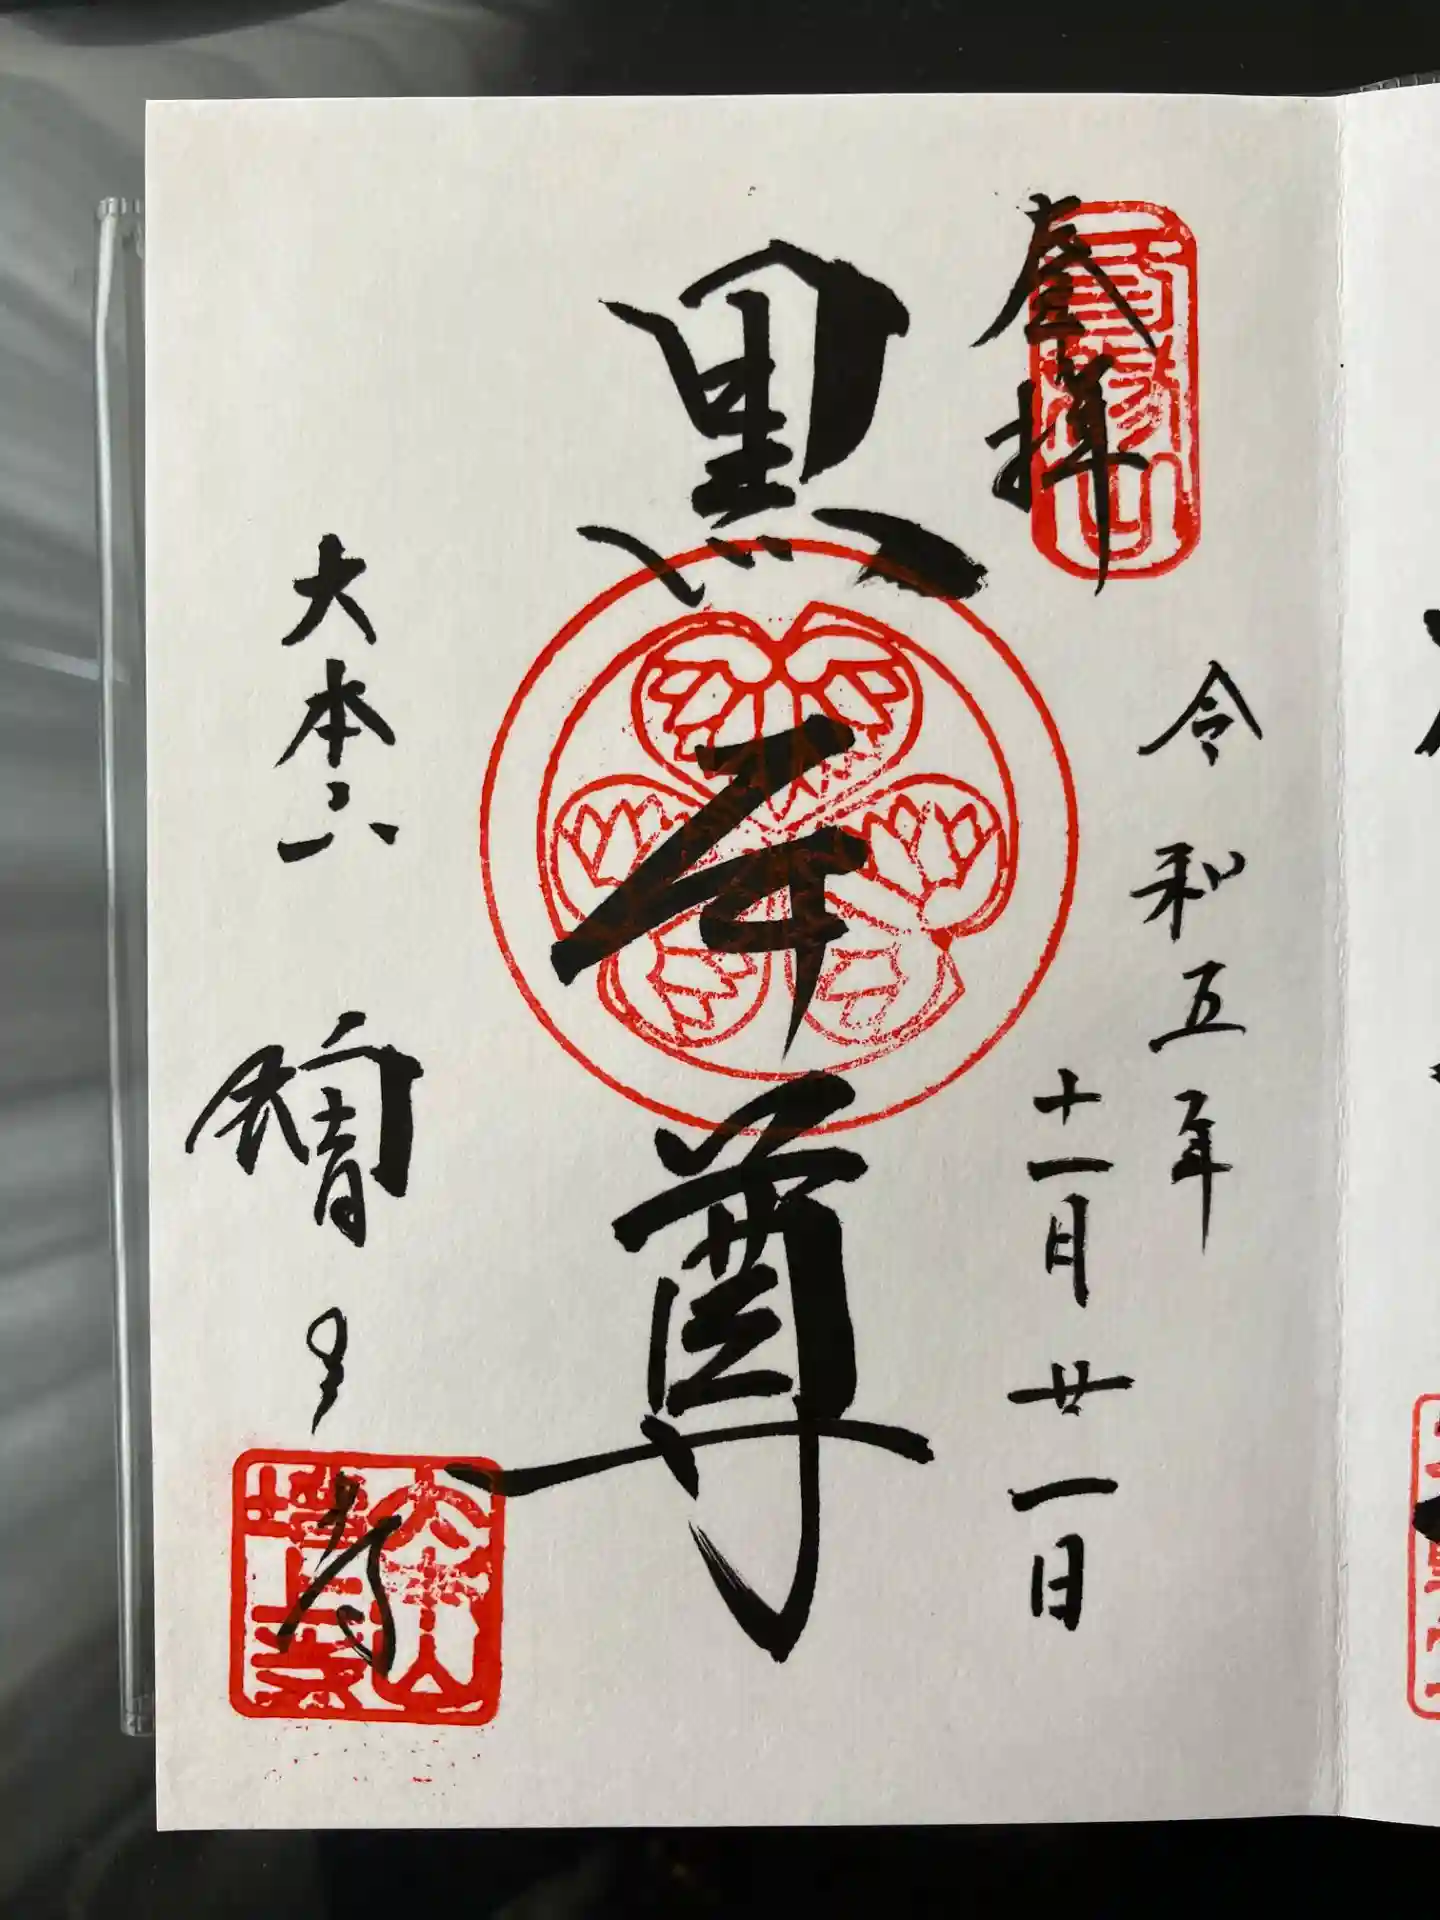 参拝
令和五年
十一月廿一日
黒本尊
大本山 増上寺
大本山
増上寺